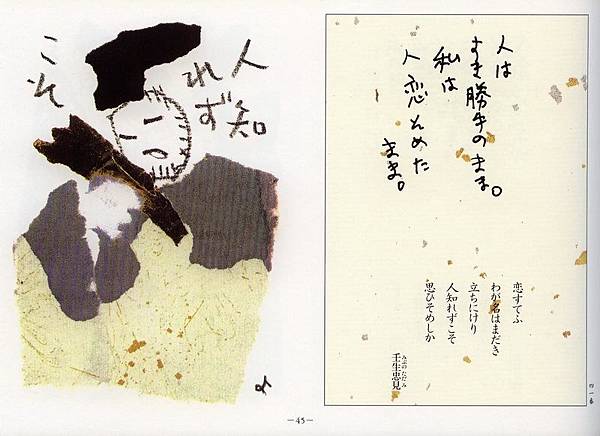 人は
すき勝手のまま。
私は
人恋そめた
まま。
恋すてふ
わが名はまだき
立ちにけり
人知れずこそ
思ひそめしか
みぶのただみ
壬生忠見
四一番
人知
れず
こそ
—45—